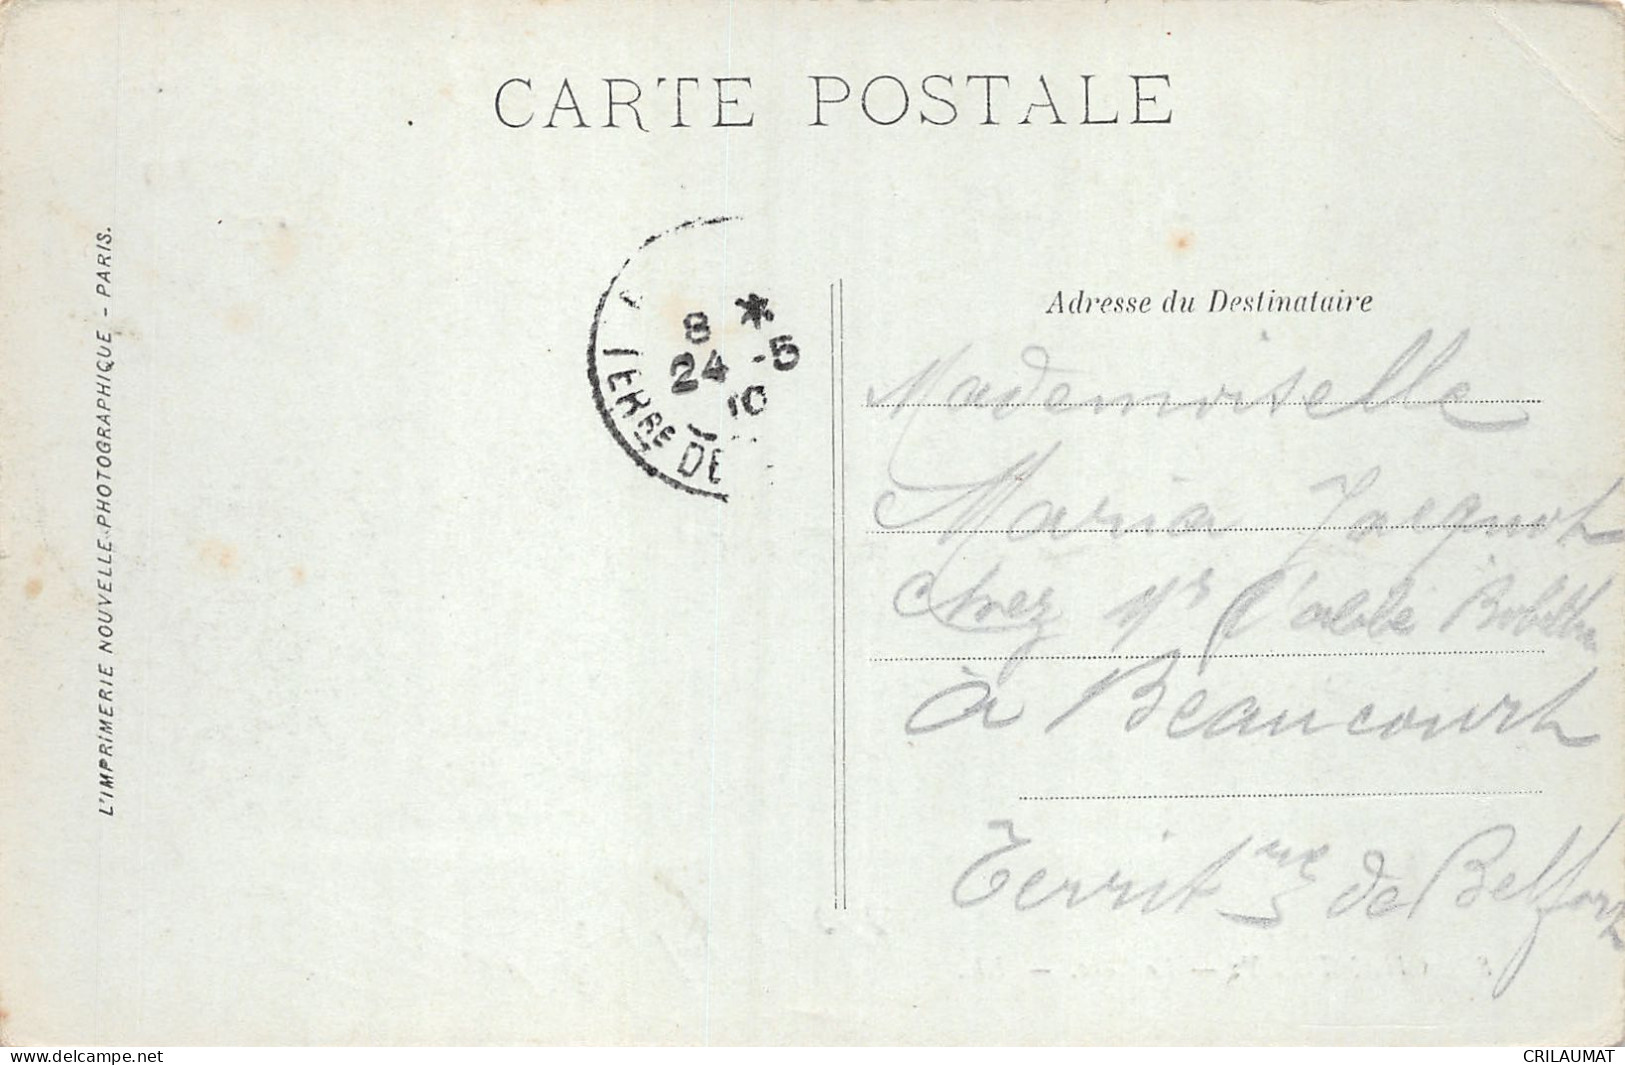 CARTE POSTALE
L'IMPRIMERIE NOUVELLE PHOTOGRAPHIQUE - PARIS.
8 *
24 -5
10
TERRE DE
Adresse du Destinataire
Mademoiselle
Maria Jacquot
Chez Mr l'abbé
à Beaucourt
Territre de Belfort
www.delcampe.net
CRILAUMAT